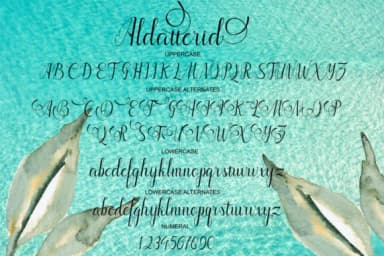 Aldatterid
UPPERCASE
ABCDEFGHIJKLMNOPQRSTUVWXYZ
UPPERCASE ALTERNATES
ABCDEFGHIJKLMNOP
QRSTUVWXYZ
LOWERCASE
abcdefghijklmnopqrstuvwxyz
LOWERCASE ALTERNATES
abcdefghijklmnopqrstuvwxyz
NUMERAL
1234567890